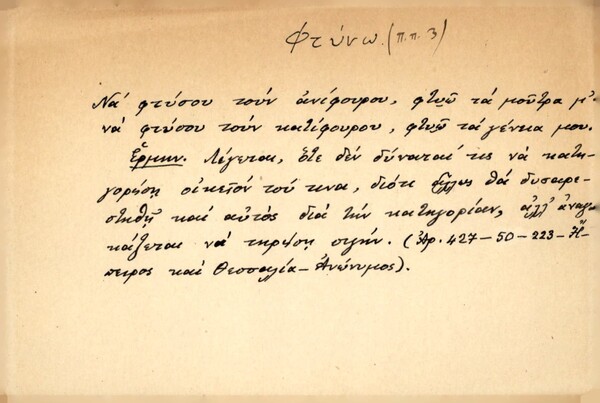 Φτύνω (π.π. 3)
Νά φτύσου τούν ἀνίφουρου, φτυῶ τά μοῦτρα μ'
νά φτύσου τούν κατίφουρου, φτυῶ τά γένεια μου.
Ἑρμην. Λέγεται, ὅτε δέν δύναταί τις νά κατη-
γορήσῃ οἰκεῖόν του τινα, διότι θά δυσαρε-
στηθῇ καί αὐτός διά τήν κατηγορίαν, ἀλλ' ἀναγ-
κάζεται νά τηρήσῃ σιγήν. (Ἀρ. 427-50-223-Ἤ-
πειρος καί Θεσσαλία-Ἀνώνυμος).